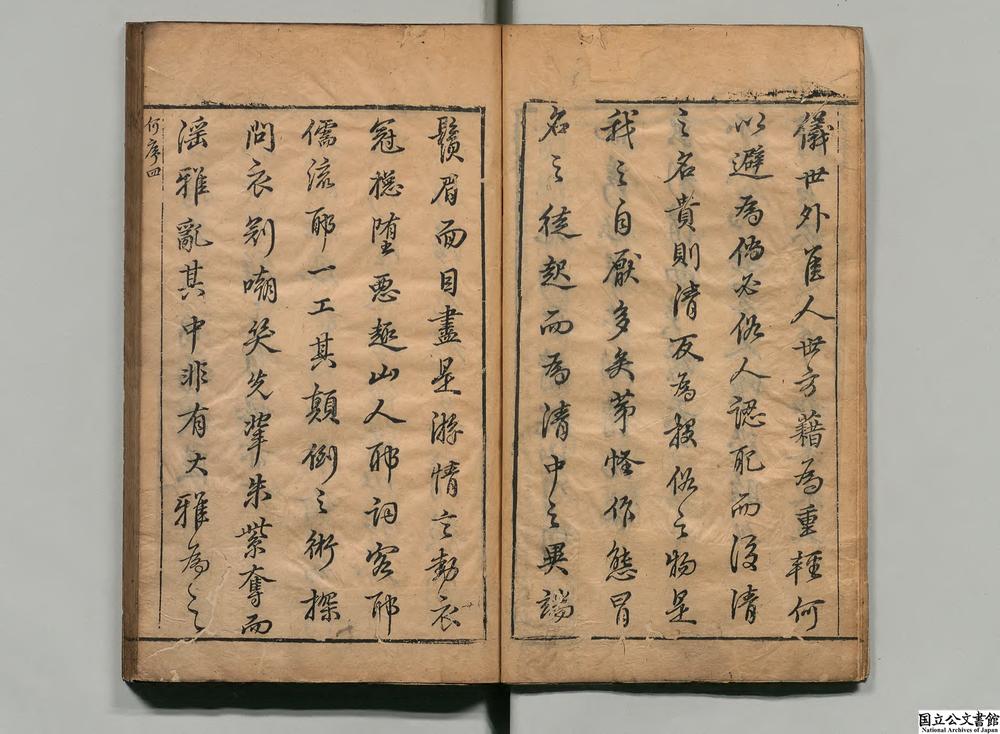 儀世外隹人世方藉為重輕何
以避為僞必俗人認配而後清
之名貴則清反為投俗之物是
我之自厭多矣苐怪作態冒
名之徒起而為清中之異端
鬚眉面目盡是游情言動衣
冠穏堕惡趣山人耶詞客耶
儒流耶一工其顛倒之術探
問衣剝嘲笑先輩朱紫奪而
淫雅亂其中非有大雅為之
何序四
国立公文書館
National Archives of Japan